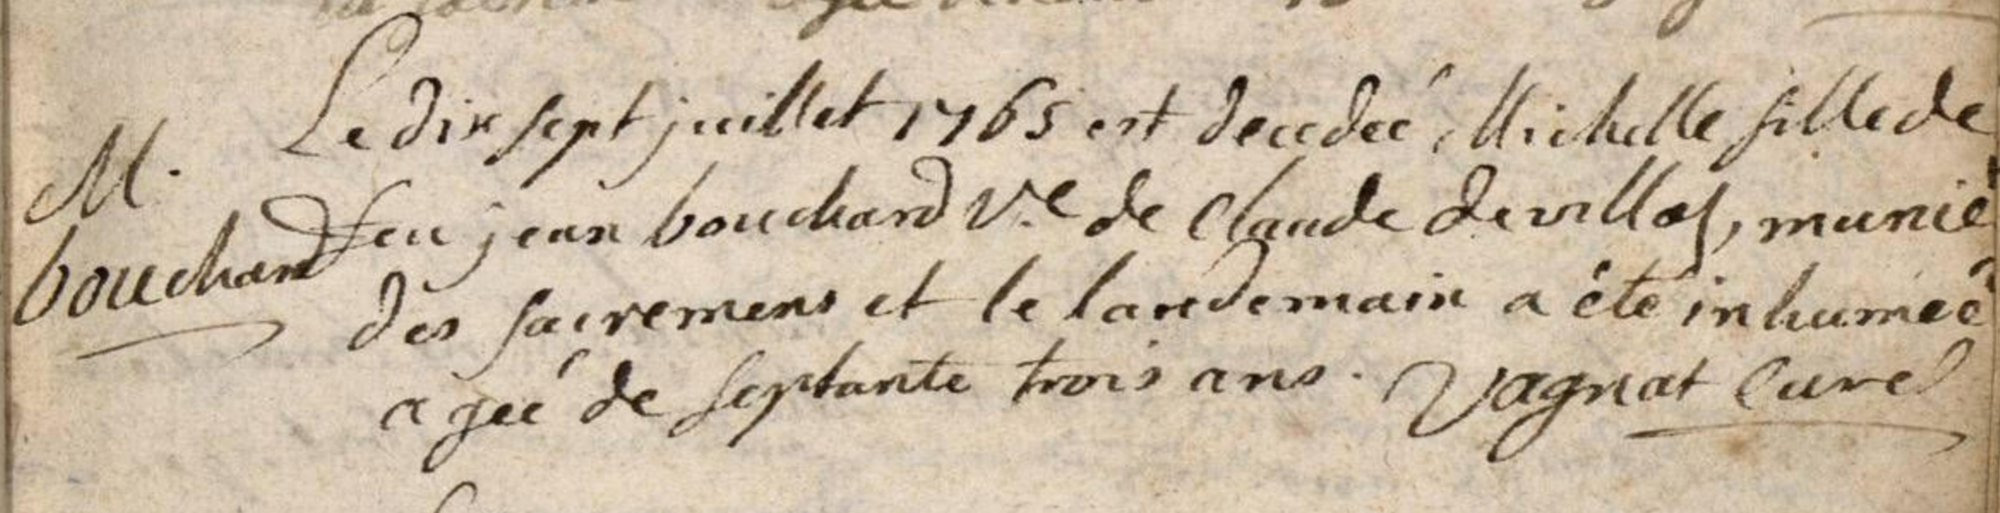 Le dix sept juillet 1765 est decedeé Michelle fille de
M.
feu jean bouchard V.e de Claude devillaz, munié
bouchard
des sacremens et le landemain a été inhumeé
ageé de septante trois ans. Vagnat Curé